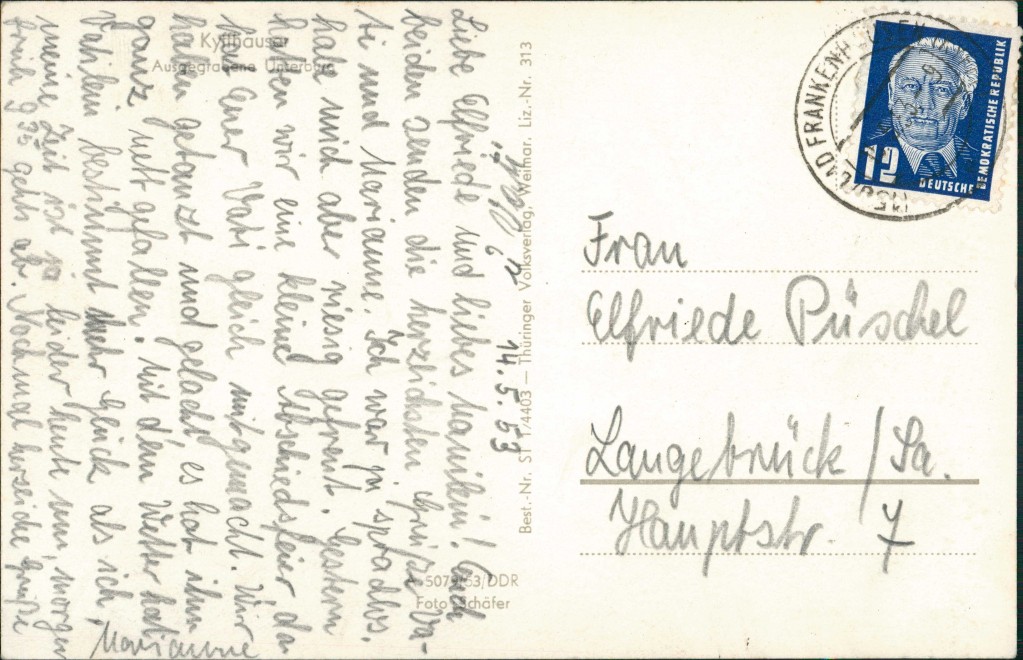 Kyffhäuser
Ausgegrabene Unterburg
14.5.53
Liebe Elfriede und liebes Mannikein! Euch
beiden senden die herzlichsten Grüße Va-
ti und Marianne. Ich war ja sprachlos.
habe mich aber riesig gefreut. Gestern
haben wir eine kleine Abschiedsfeier da
hat Euer Vati gleich mitgemacht. Wir
haben getanzt und gelacht es hat ihm
ganz nett gefallen. Mit dem Wetter hat
Vatilein bestimmt mehr Glück als ich,
meine Zeit ist ja leider heute um, morgen
früh 9 35 gehts ab. Nochmal herzliche Grüße
Marianne
u. Vati
Best.-Nr. ST 1/4403 — Thüringer Volksverlag, Weimar, Liz.-Nr. 313
A 5079/53/DDR
Foto: Schäfer
BAD FRANKENHAUSEN
12
DEUTSCHE
DEMOKRATISCHE REPUBLIK
Frau
Elfriede Püschel
Langebrück / Sa.
Hauptstr. 7